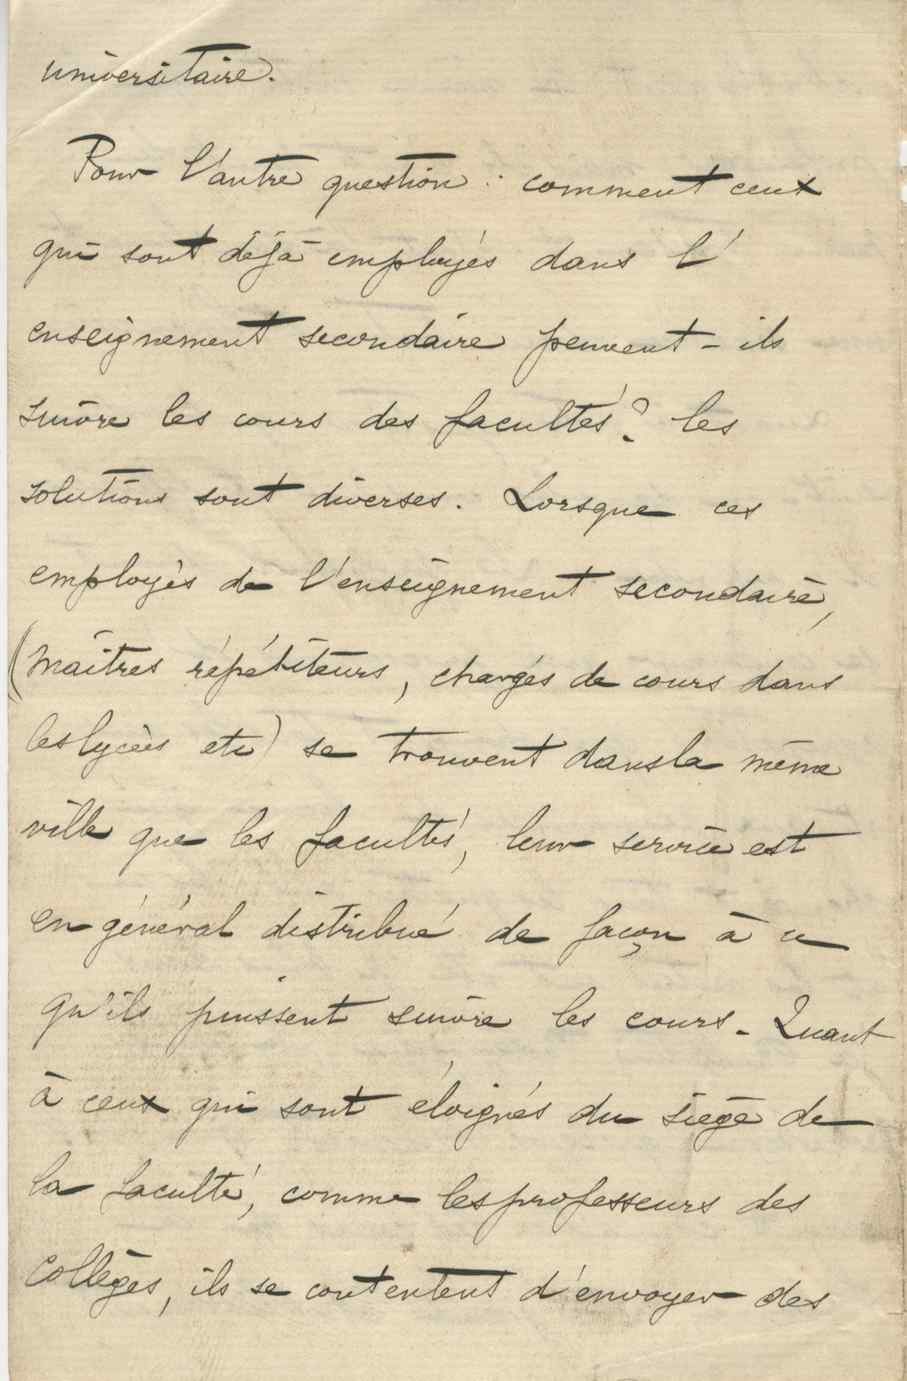 universitaire.
Pour l'autre question : comment ceux
qui sont déjà employés dans l'
enseignement secondaire peuvent-ils
suivre les cours des facultés? les
solutions sont diverses. Lorsque ces
employés de l'enseignement secondaire,
(maîtres répétiteurs, chargés de cours dans
les lycées etc) se trouvent dans la même
ville que les facultés, leur service est
en général distribué de façon à ce
qu'ils puissent suivre les cours. Quant
à ceux qui sont éloignés du siège de
la faculté, comme les professeurs des
Collèges, ils se contentent d'envoyer des